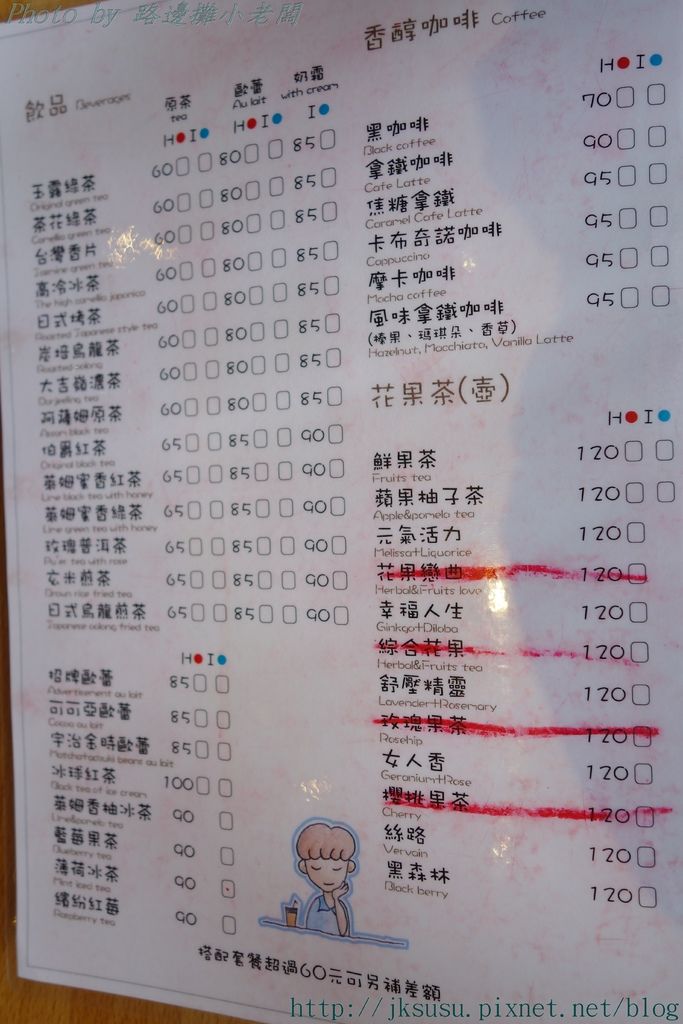 Photo by 路邊攤小老闆
飲品 Beverages
原茶 tea
歐蕾 Au lait
奶霜 with cream
H I H I I
玉露綠茶 60 80 85
Original green tea
茶花綠茶 60 80 85
Camellia green tea
台灣香片 60 80 85
Jasmine green tea
高冷冰茶 60 80 85
The high camellia japonica
日式烤茶 60 80 85
Roasted Japanese style tea
炭焙烏龍茶 60 80 85
Roasted oolong
大吉嶺濃茶 60 80 85
Darjeeling tea
阿薩姆原茶 60 80 85
Assam black tea
伯爵紅茶 65 85 90
Original black tea
萊姆蜜香紅茶 65 85 90
Lime black tea with honey
萊姆蜜香綠茶 65 85 90
Lime green tea with honey
玫瑰普洱茶 65 85 90
Pu'er tea with rose
玄米煎茶 65 85 90
Brown rice fried tea
日式烏龍煎茶 65 85 90
Japanese oolong fried tea
H I
招牌歐蕾 85
Advertisement au lait
可可亞歐蕾 85
Cocoa au lait
宇治金時歐蕾 85
Matchatazuki beans au lait
冰球紅茶 100
Black tea of ice cream
萊姆香柚冰茶 90
Lime&pomelo tea
藍莓果茶 90
Blueberry tea
薄荷冰茶 90
Mint iced tea
繽紛紅莓 90
Raspberry tea
香醇咖啡 Coffee
H I
黑咖啡 70
Black coffee
拿鐵咖啡 90
Cafe Latte
焦糖拿鐵 95
Caramel Cafe Latte
卡布奇諾咖啡 95
Cappuccino
摩卡咖啡 95
Mocha coffee
風味拿鐵咖啡 95
(榛果、瑪琪朵、香草)
Hazelnut, Macchiato, Vanilla Latte
花果茶(壺)
H I
鮮果茶 120
Fruits tea
蘋果柚子茶 120
Apple&pomelo tea
元氣活力 120
Melissa+Liquorice
花果戀曲 120
Herbal&Fruits love
幸福人生 120
Ginkgo+Diloba
綜合花果 120
Herbal&Fruits tea
舒壓精靈 120
Lavender+Rosemary
玫瑰果茶 120
Rosehip
女人香 120
Geranium+Rose
櫻桃果茶 120
Cherry
絲路 120
Vervain
黑森林 120
Black berry
搭配套餐超過60元可另補差額
http://jksusu.pixnet.net/blog